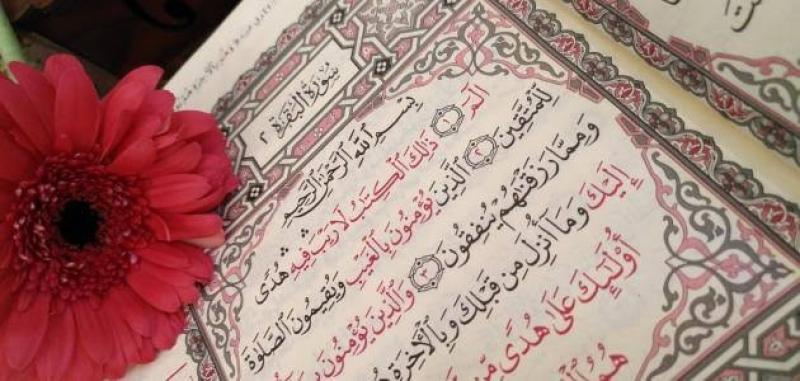 سُورَةُ البَقَرَةِ ٢
بِسْمِ ٱللَّهِ ٱلرَّحْمَٰنِ ٱلرَّحِيمِ
الٓمٓ ١ ذَٰلِكَ ٱلْكِتَٰبُ لَا رَيْبَ ۛ فِيهِ ۛ هُدًى
لِّلْمُتَّقِينَ ٢ ٱلَّذِينَ يُؤْمِنُونَ بِٱلْغَيْبِ وَيُقِيمُونَ ٱلصَّلَوٰةَ
وَمِمَّا رَزَقْنَٰهُمْ يُنفِقُونَ ٣ وَٱلَّذِينَ يُؤْمِنُونَ
إِلَيْكَ وَمَآ أُنزِلَ مِن قَبْلِكَ وَبِٱلْءَاخِرَةِ
أُو۟لَٰٓئِكَ عَلَىٰ هُدًى مِّن
هُمُ